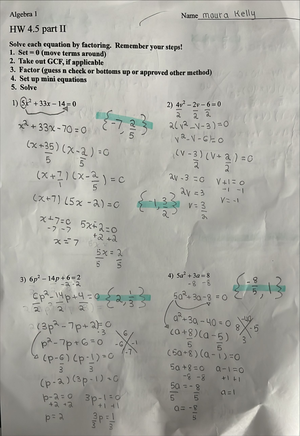 Algebra 1
Name Maura Kelly
HW 4.5 part II
Solve each equation by factoring. Remember your steps!
1. Set = 0 (move terms around)
2. Take out GCF, if applicable
3. Factor (guess n check or bottoms up or approved other method)
4. Set up mini equations
5. Solve
1) 5x² + 33x – 14 = 0
x² + 33x - 70 = 0
(x+35)(x-2) = 0
5 5
(x+7)(x-2) = 0
1 5
(x+7)(5x-2) = 0
x+7=0 5x-2=0
-7 -7 +2 +2
x=-7 5x=2
5 5
{-7, 2/5}
2) 4v² – 2v – 6 = 0
2 2 2
2(v²-v-3)=0
v²-v-6=0
(v-3)(v+2)=0
2 2
2v-3=0 v+1=0
-1 -1
2v=3 v=-1
v=3/2
{-1, 3/2}
3) 6p² – 14p + 6 = 2
-2 -2
6p²-14p+4=0
2 2 2
{2, 1/3}
(3p²-7p+2)=0
p²-7p+6=0
6
-6 -1
-7
(p-6)(p-1)=0
3 3
(p-2)(3p-1)=0
p-2=0 3p-1=0
+2 +2 +1 +1
p=2 3p=1
3 3
4) 5a² + 3a = 8
-8 -8
5a²+3a-8=0
{-8/5, 1}
a²+3a-40=0
-40
8 -5
3
(a+8)(a-5)
5 5
(5a+8)(a-1)=0
5a+8=0 a-1=0
-8 -8 +1 +1
5a=-8 a=1
5 5
a=-8/5